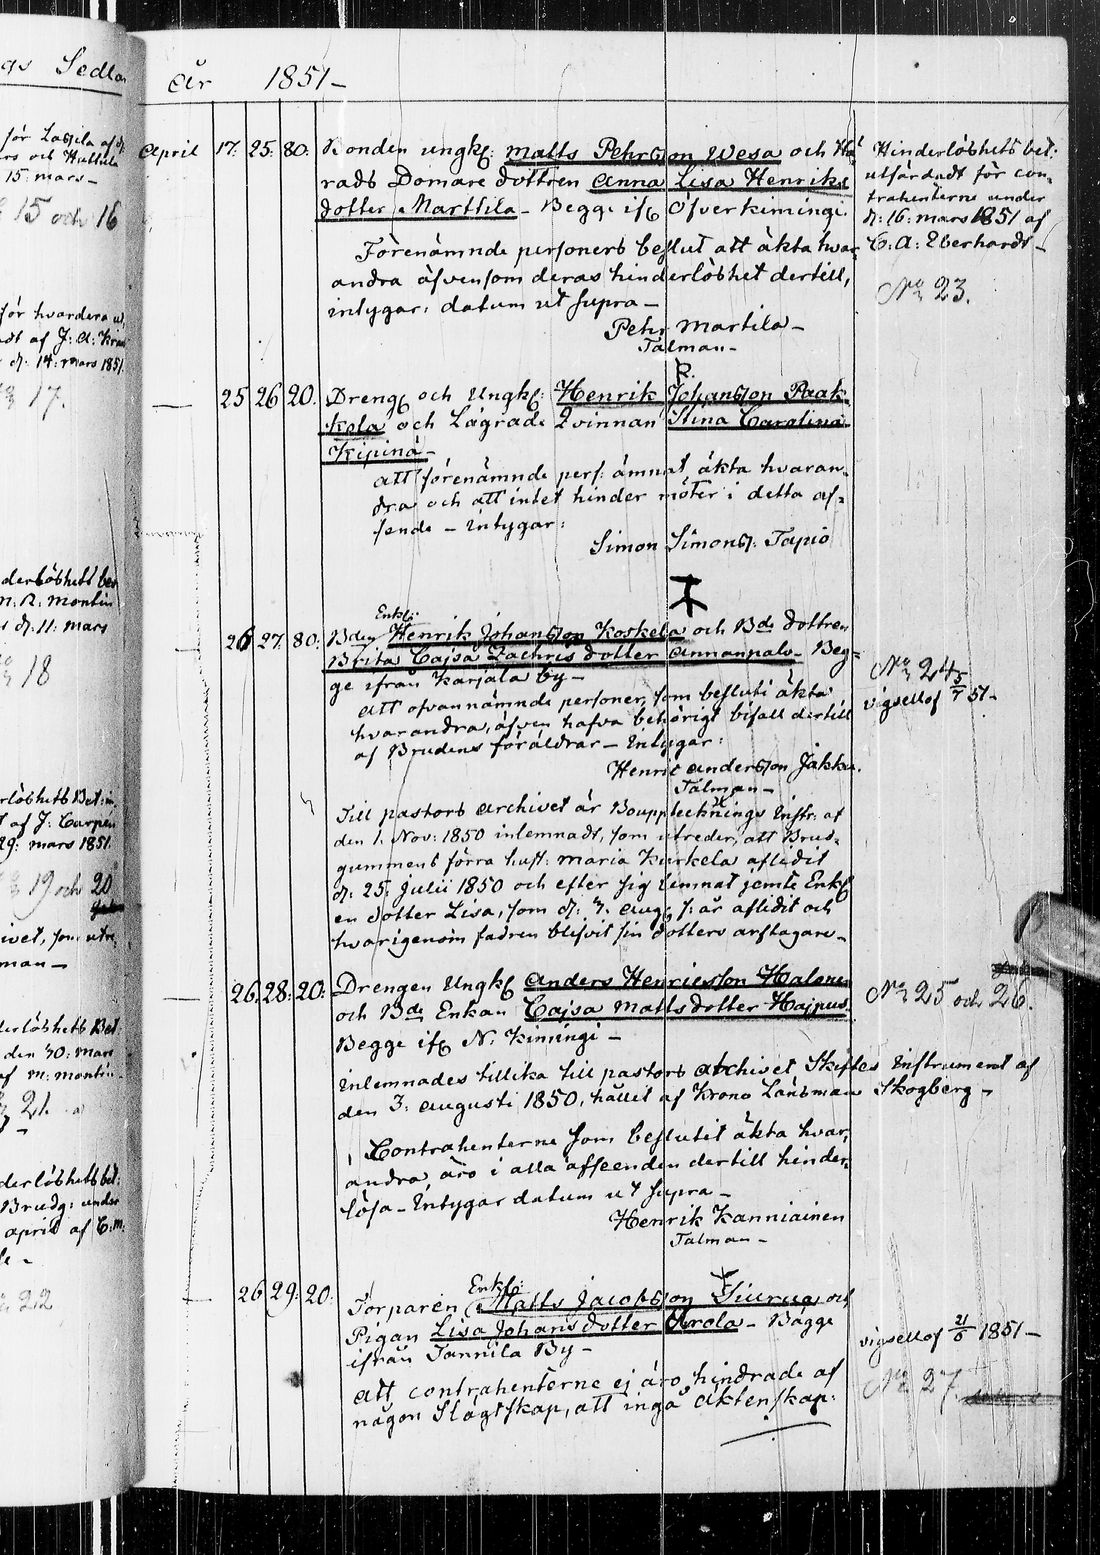 gs Sedlar
år 1851 –
för Lassila af d:
ars och Huttula
15: mars –
15 och 16
för hvardera ut
dt af J: A: Kran
d: 14: mars 1851.
17.
derlöshets bet
M: R: Montin
d: 11: mars
No 18
erlöshets Bet:
t af J: Carpén
29: mars 1851.
No 19 och 20
ivet, som utre
man –
derlöshets Bet
den 30: mars
af M: Montin
No 21
derlöshets bet:
Brudg: under
april af C: M:
No 22
April 17: 25: 80: Bonden ungk: Matts Pehrsson Wesa och Hä
rads Domare dottren Anna Lisa Henriks
dotter Marttila – Begge ifr Öfverkimingi
Förenämnde personers beslut att äkta hvar
andra äfvensom deras hinderlöshet dertill,
intygar: datum ut supra –
Pehr Martila –
Talman –
Hinderlöshets bet:
utfärdadt för con-
trahenterne under
d: 16: mars 1851 af
C: A: Eberhardt –
No 23.
25 26 20: Dreng och Ungk: Henrik Johansson Paak-
kola och Lägrade Qvinnan Stina Carolina
Kipinä –
att förenämnde pers: ämnat äkta hvaran-
dra och att intet hinder möter i detta af-
seende – Intygar:
Simon Simonss: Tapio
26 27: 80: Bden Enkl: Henrik Johansson Koskela och Bde dottren
Brita Cajsa Zachris dotter Annanpalo – Beg-
ge ifrån Karjala by –
att ofvannämnde personer, som beslutit äkta
hvarandra, äfven hafva behörigt bifall dertill
af Brudens föräldrar – Intygar:
Henric Andersson Jakku.
Talman –
No 24
vigsellof 5/5 51 –
Till pastors archivet är Bouppteknings Instr: af
den 1: Nov: 1850 inlemnadt, som utreder, att Brud-
gummens förra hust: Maria Kurkela aflidit
d: 25: Julii 1850 och efter sig lemnat jemte Enkl
en dotter Lisa, som d: 3: Aug: s: år aflidit och
hvarigenom fadren blifvit sin dotters arftagare –
26: 28: 20: Drengen Ungk Anders Henricsson Halonen
och Bde Enkan Cajsa Matts dotter Hajpus
Begge ifr N: Kimingi –
No 25 och 26.
Inlemnades tillika till pastors archivet Skiftes Instrument af
den 3: Augusti 1850, hållet af Krono Länsman Skogberg –
Contrahenterne som beslutit äkta hvar-
andra, äro i alla afseenden dertill hinder-
lösa – Intygar datum ut supra –
Henrik Kanniainen
Talman –
26 29: 20: Torparen Enkl: Matts Jacobsson Siurua och
Pigan Lisa Johans dotter Arola – Bägge
ifrån Tannila By –
att contrahenterne ej äro hindrade af
någon Slägtskap, att ingå äktenskap:
vigsellof 21/6 1851 –
No 27.